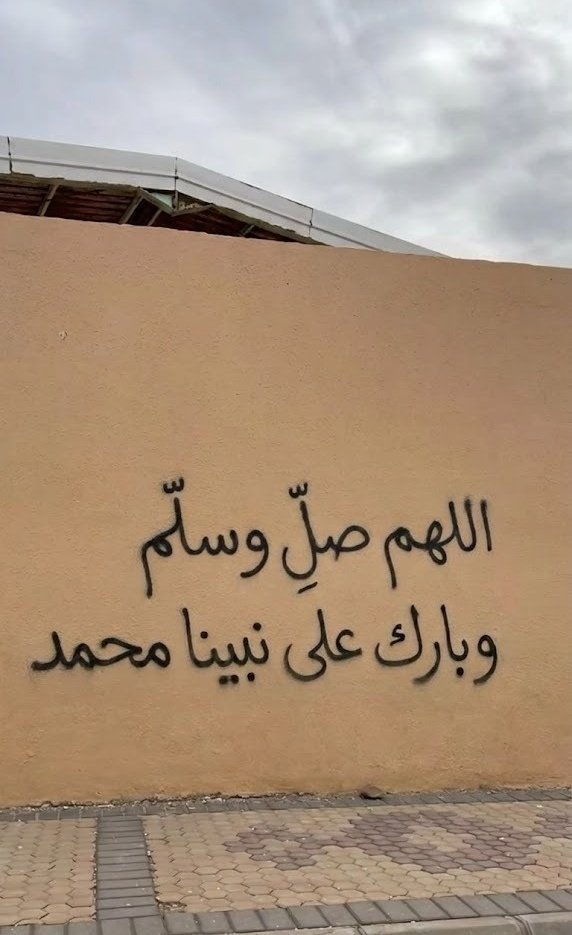 اللهم صلِّ وسلّم
وبارك على نبينا محمد